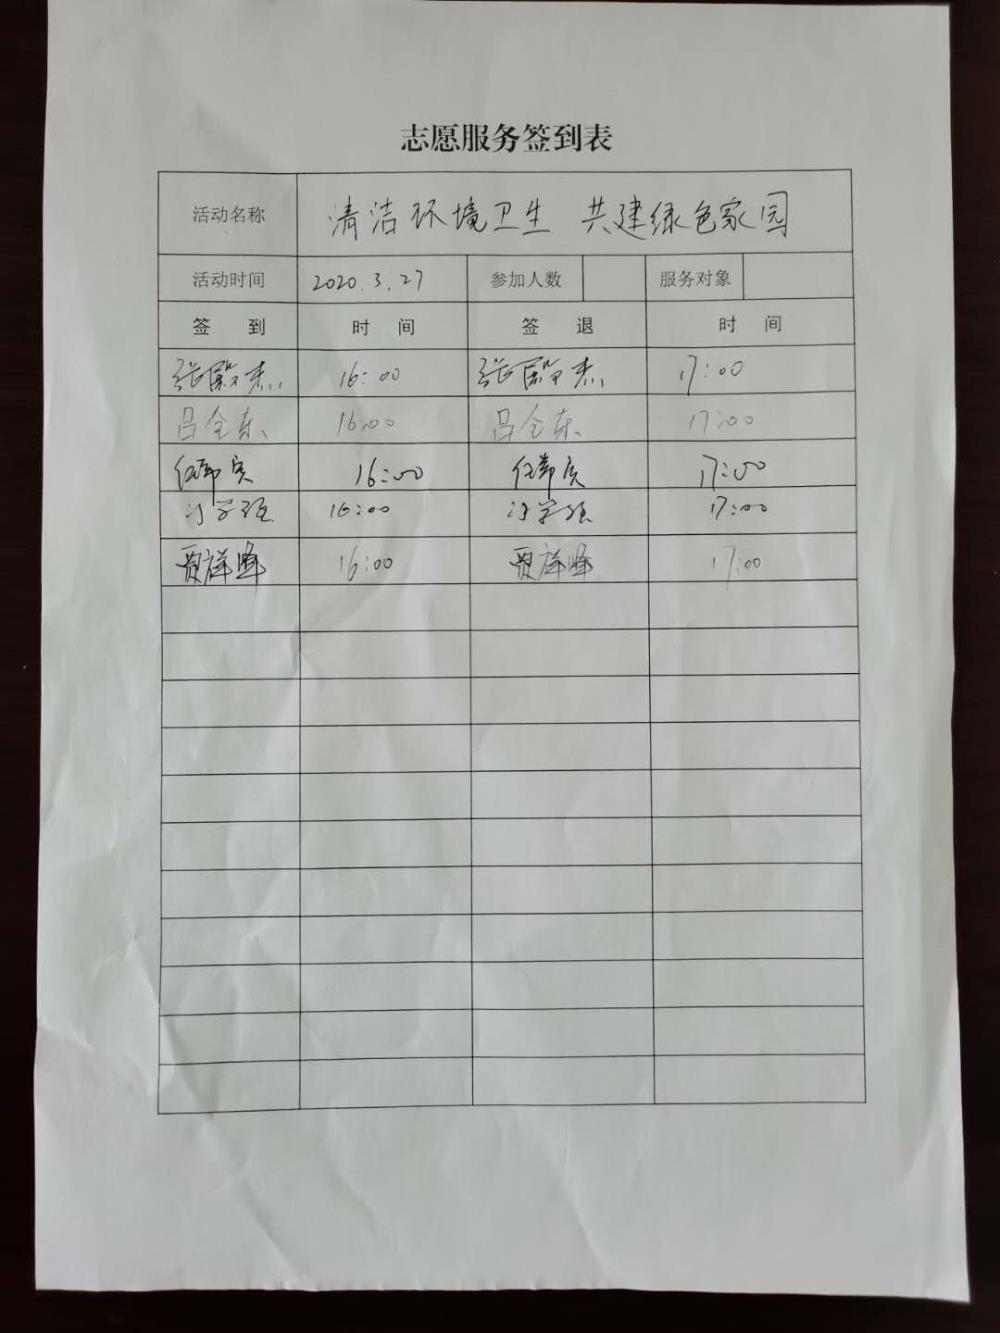 志愿服务签到表
活动名称 清洁环境卫生 共建绿色家园
活动时间 2020.3.27 参加人数 服务对象
签 到 时 间 签 退 时 间
张殿杰 16:00 张殿杰 17:00
吕全东 16:00 吕全东 17:00
16:00 17:00
16:00 17:00
贾祥峰 16:00 贾祥峰 17:00